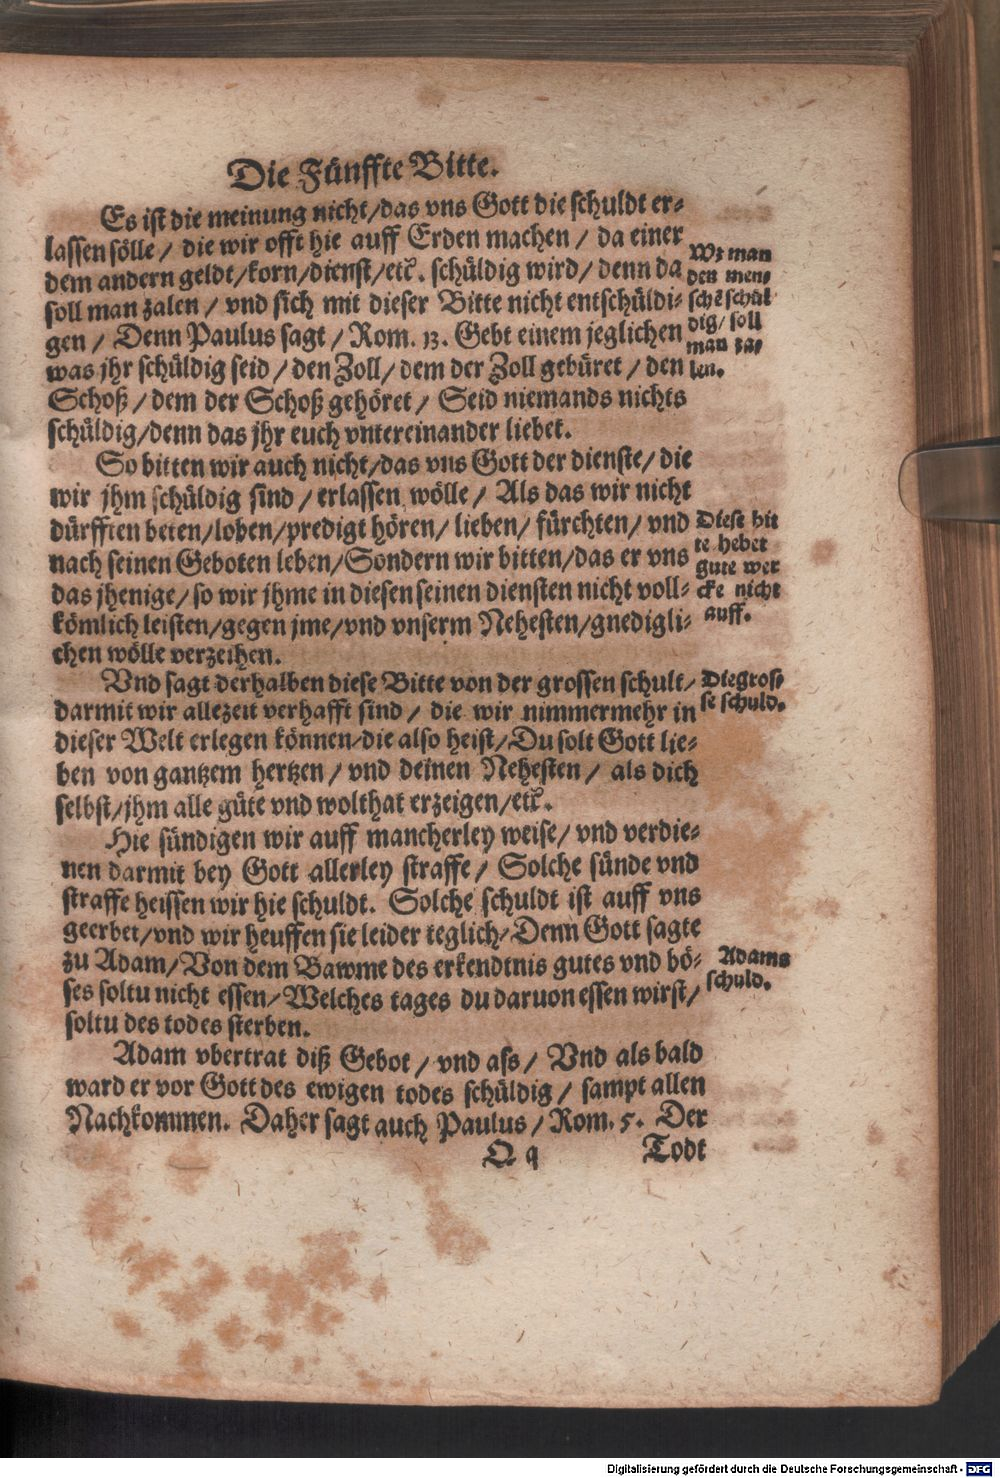 Die Fünffte Bitte.
Es ist die meinung nicht/das vns Gott die schuldt er-
lassen sölle / die wir offt hie auff Erden machen / da einer
dem andern geldt/korn/dienst/etc. schüldig wird/ denn da
soll man zalen / vnd sich mit dieser Bitte nicht entschüldi-
gen / Denn Paulus sagt / Rom. 13. Gebt einem jeglichen
was jhr schüldig seid / den Zoll/ dem der Zoll gebüret / den
Schoß / dem der Schoß gehöret / Seid niemands nichts
schüldig/denn das jhr euch vntereinander liebet.
Wz man
den men-
schē schül
dig/ soll
man za-
len.
So bitten wir auch nicht/das vns Gott der dienste/ die
wir jhm schüldig sind / erlassen wölle / Als das wir nicht
dürfften beten/loben/predigt hören/ lieben/ fürchten/ vnd
nach seinen Geboten leben/Sondern wir bitten/das er vns
das jhenige/ so wir jhme in diesen seinen diensten nicht voll-
kömlich leisten/gegen jme/vnd vnserm Nehesten/gnedigli-
chen wölle verzeihen.
Diese bit
te hebet
gute wer
cke nicht
auff.
Vnd sagt derhalben diese Bitte von der grossen schult/
darmit wir allezeit verhafft sind / die wir nimmermehr in
dieser Welt erlegen können/die also heist/Du solt Gott lie-
ben von gantzem hertzen / vnd deinen Nehesten / als dich
selbst/jhm alle güte vnd wolthat erzeigen/etc.
Die gros-
se schuld.
Hie sündigen wir auff mancherley weise/ vnd verdie-
nen darmit bey Gott allerley straffe / Solche sünde vnd
straffe heissen wir hie schuldt. Solche schuldt ist auff vns
geerbet/vnd wir heuffen sie leider teglich/Denn Gott sagte
zu Adam/Von dem Bawme des erkendtnis gutes vnd bö-
ses soltu nicht essen/Welches tages du daruon essen wirst/
soltu des todes sterben.
Adams
schuld.
Adam vbertrat diß Gebot / vnd ass/ Vnd als bald
ward er vor Gott des ewigen todes schüldig / sampt allen
Nachkommen. Daher sagt auch Paulus / Rom. 5. Der
Q q
Todt
Digitalisierung gefördert durch die Deutsche Forschungsgemeinschaft - DFG